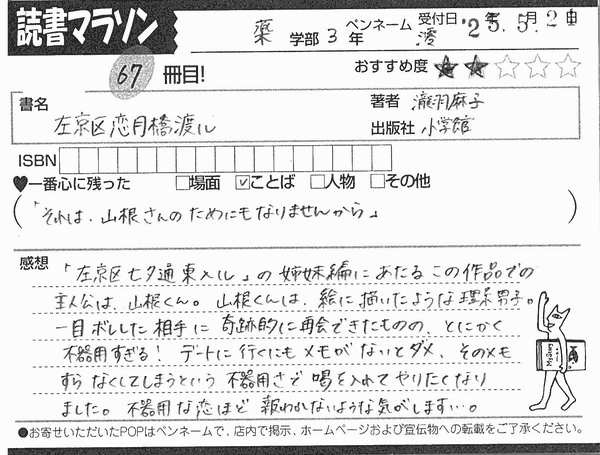 読書マラソン
薬 学部 3 年 ペンネーム 澪 受付日 '25.5.2
67 冊目! おすすめ度 ★★☆☆☆
書名 著者 瀧羽麻子
左京区恋月橋渡ル 出版社 小学館
ISBN
♥一番心に残った □場面 ☑ことば □人物 □その他
(「それは、山根さんのためにもなりませんから」)
感想 「左京区七夕通東入ル」の姉妹編にあたるこの作品での
主人公は、山根くん。山根くんは、絵に描いたような理系男子。
一目ボレした相手に奇跡的に再会できたものの、とにかく
不器用すぎる! デートに行くにもメモがないとダメ、そのメモ
すらなくしてしまうという不器用さで喝を入れてやりたくなり
ました。不器用な恋ほど報われないような気がします…。
●お寄せいただいたPOPはペンネームで、店内で掲示、ホームページおよび宣伝物への転載をご了承ください。